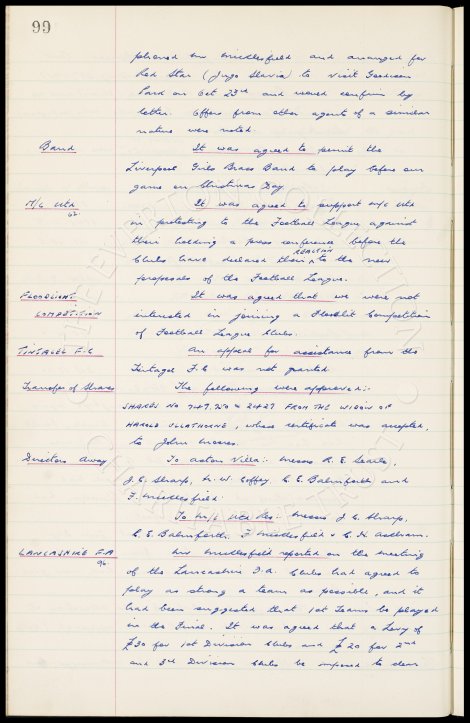 99
phoned Mr Micklesfield and arranged for
Red Star (Jugo Slavia) to visit Goodison
Park on Oct 23rd and would confirm by
letter. Offers from other agents of a similar
nature were noted.
Band It was agreed to permit the
Liverpool Girls Brass Band to play before our
game on Christmas Day.
M/c Utd It was agreed to support M/c Utd
62.
in protesting to the Football League against
their holding a press conference before the
REACTION
Clubs have declared their ^ to the new
proposals of the Football League.
FLOODLIGHT It was agreed that we were not
COMPETITION interested in joining a Floodlit Competition
of Football League Clubs.
TINTAGEL F.C An appeal for assistance from the
Tintagel F.C was not granted
Transfer of Shares The following were approved:-
SHARES NO 747.750 & 2427 FROM THE WIDOW OF
HAROLD , whose certificate was accepted,
to John
Directors Away To Aston Villa:- Messrs R. E. Searle,
J. C. Sharp, W. Coffey C. E. Balmforth and
F. Micklesfield.
To M/c Utd Res:- Messrs J. C. Sharp,
C. E. Balmforth, F. Micklesfield & C. H. Askham.
LANCASHIRE F.A Mr Micklesfield reported on the meeting
96.
of the Lancashire F.A. Clubs had agreed to
play as strong a team as possible, and it
had been suggested that 1st Teams be played
in the Final. It was agreed that a Levy of
£30 for 1st Division Clubs and £20 for 2nd
and 3rd Division Clubs be imposed to clear